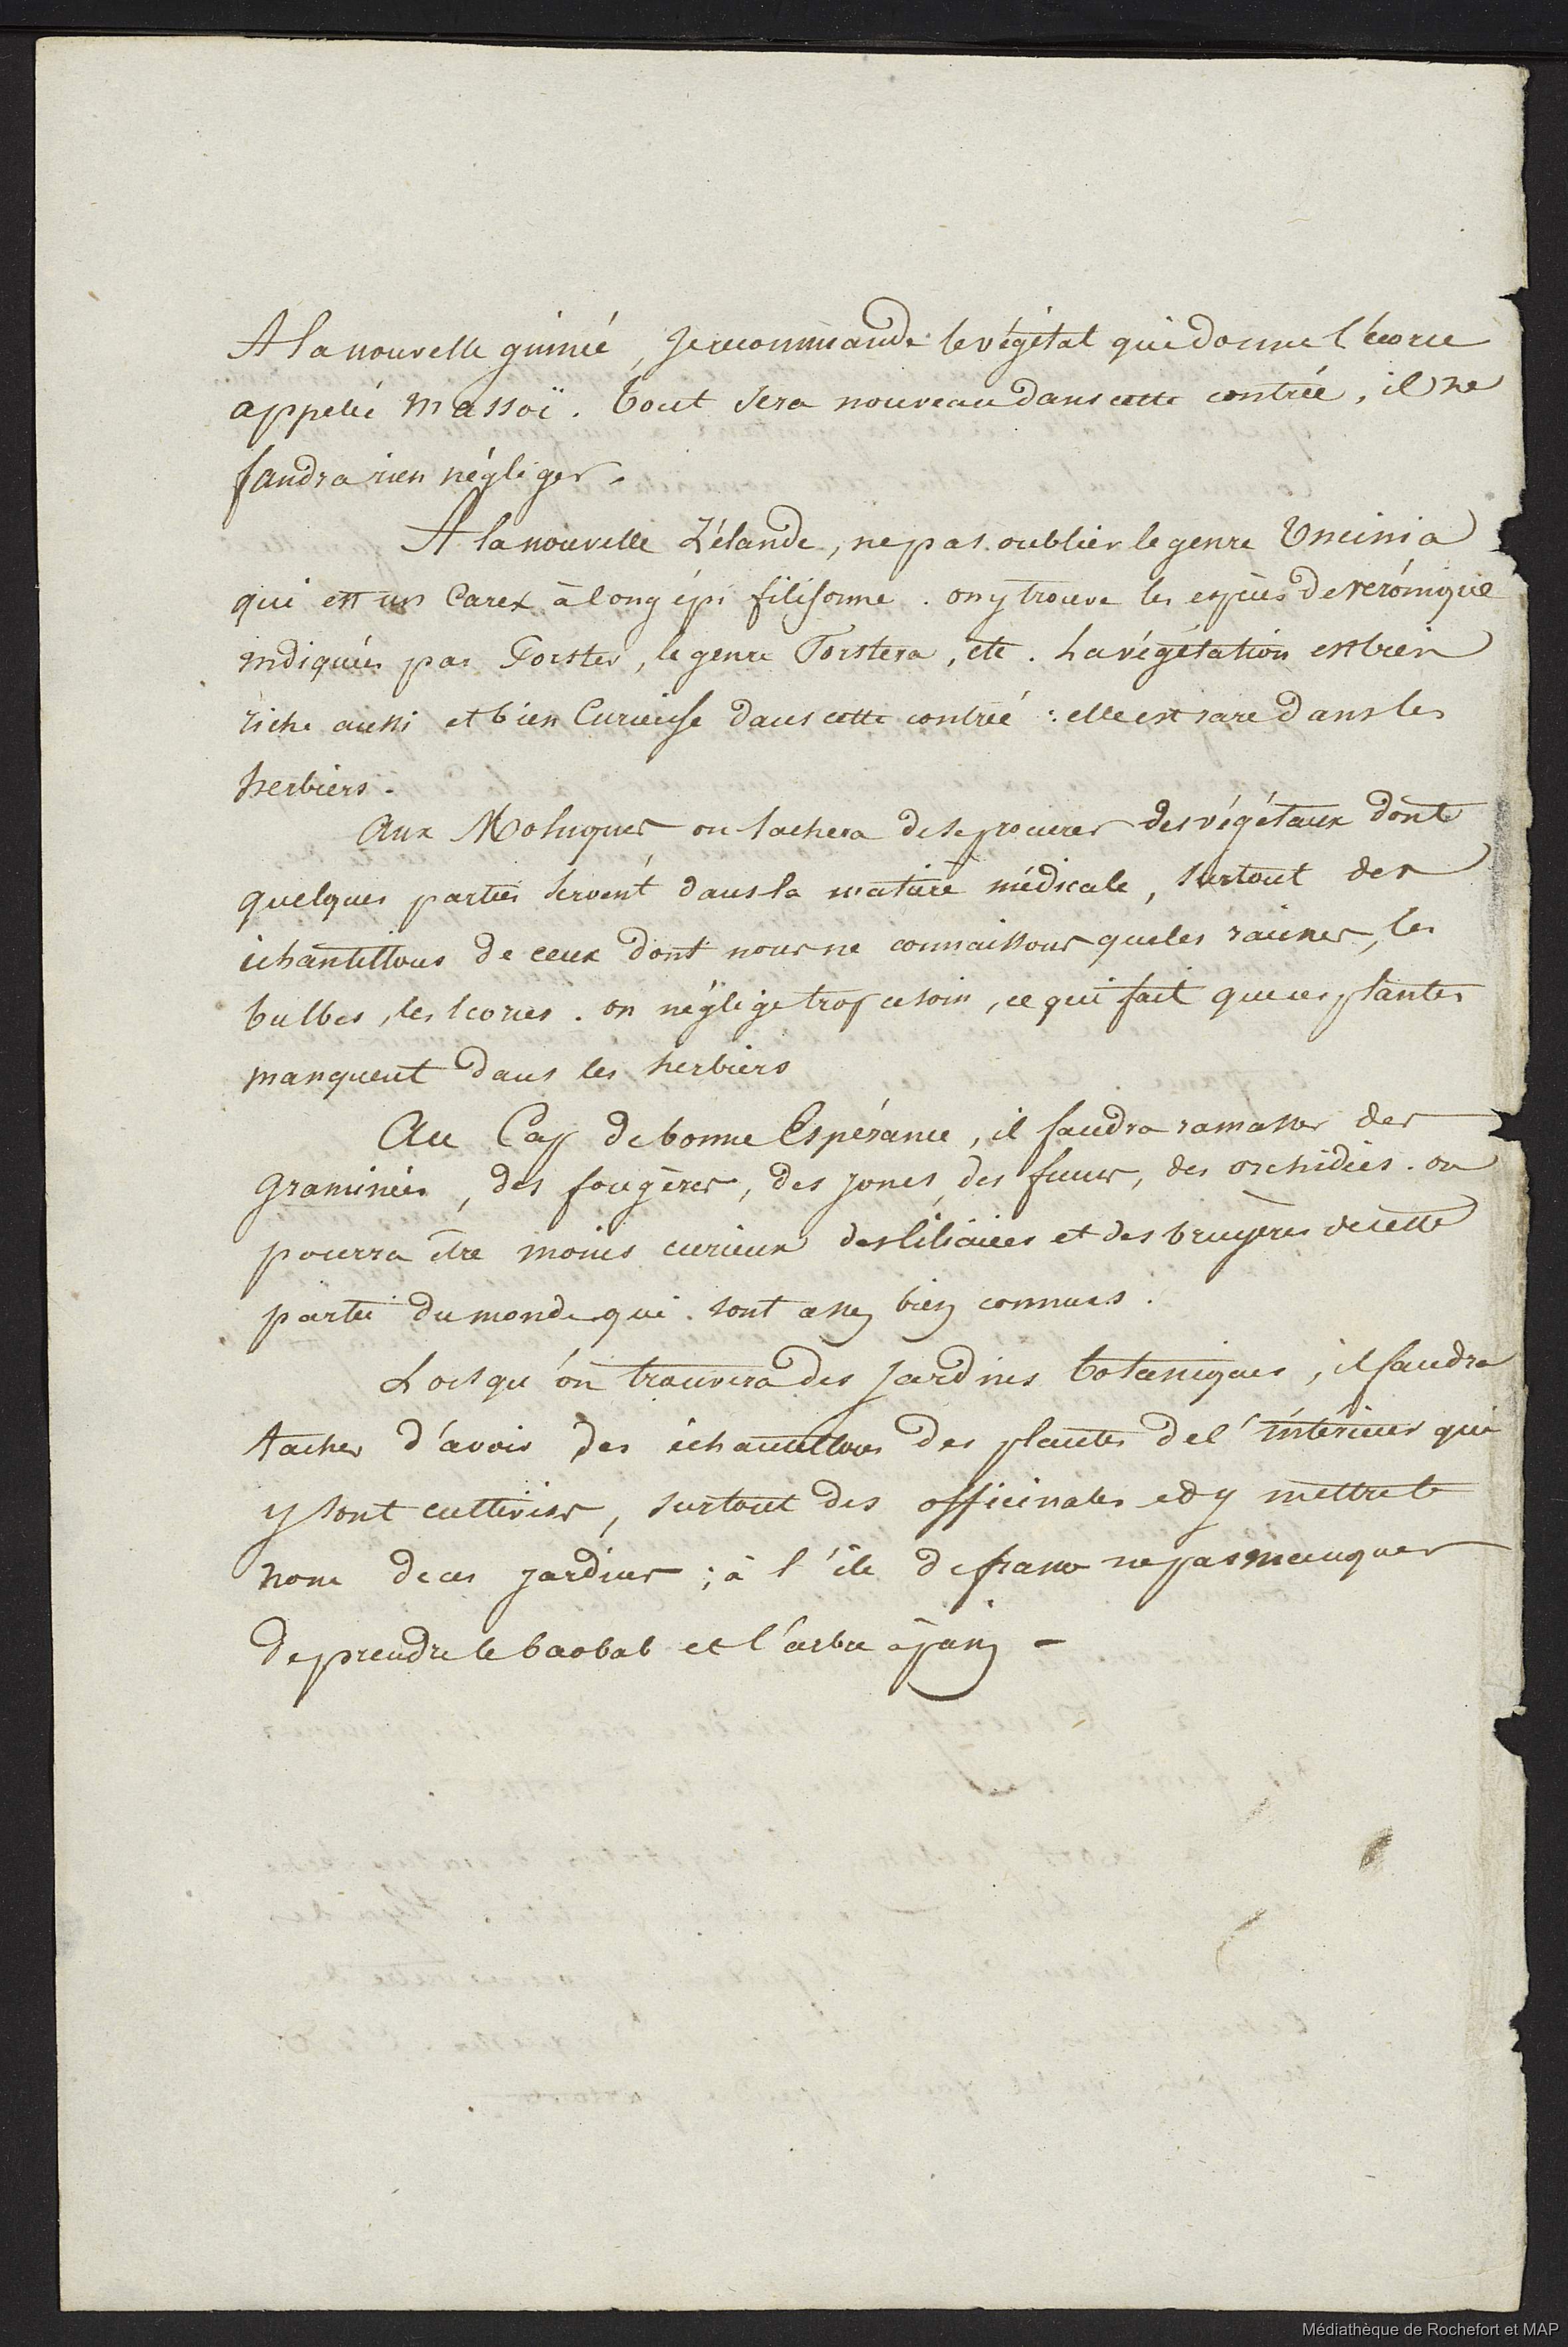 A la nouvelle guinée, je recommande le végétal qui donne l'écorce
appelée massoï. Tout sera nouveau dans cette contrée, il ne
faudra rien négliger.
A la nouvelle Zélande, ne pas oublier le genre Uncinia
qui est un Carex à long épi filiforme. on y trouve les espèces de véronique
indiquées par Forster, le genre Forstera, etc. La végétation est bien
riche aussi et bien curieuse dans cette contrée : elle est rare dans les
herbiers.
Aux Moluques on tachera de se procurer des végétaux dont
quelques parties servent dans la matière médicale, surtout des
échantillons de ceux dont nous ne connaissons que les racines, les
bulbes, les écorces. on néglige trop ce soin, ce qui fait que ces plantes
manquent dans les herbiers
Au Cap de bonne Espérance, il faudra ramasser des
graminées, des fougères, des joncs, des fucus, des orchidées. on
pourra être moins curieux des liliacées et des bruyères de cette
partie du monde qui sont assez bien connues.
Lorsqu'on trouvera des jardins botaniques, il faudra
tacher d'avoir des échantillons des plantes de l'intérieur qui
y sont cultivées, surtout des officinales et d'y mettre le
nom de ces jardins ; à l'île de france ne pas manquer
de prendre le baobab et l'arbre à pain -
Médiathèque de Rochefort et MAP